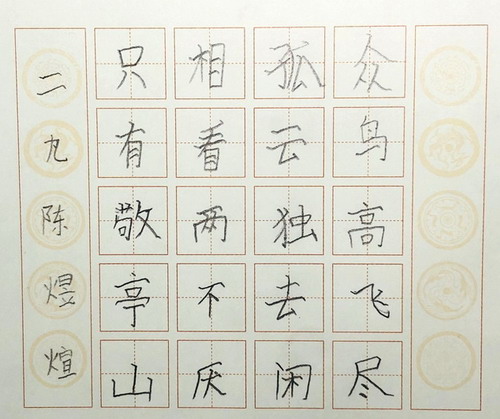 众鸟高飞尽
孤云独去闲
相看两不厌
只有敬亭山
二九陈煜煊